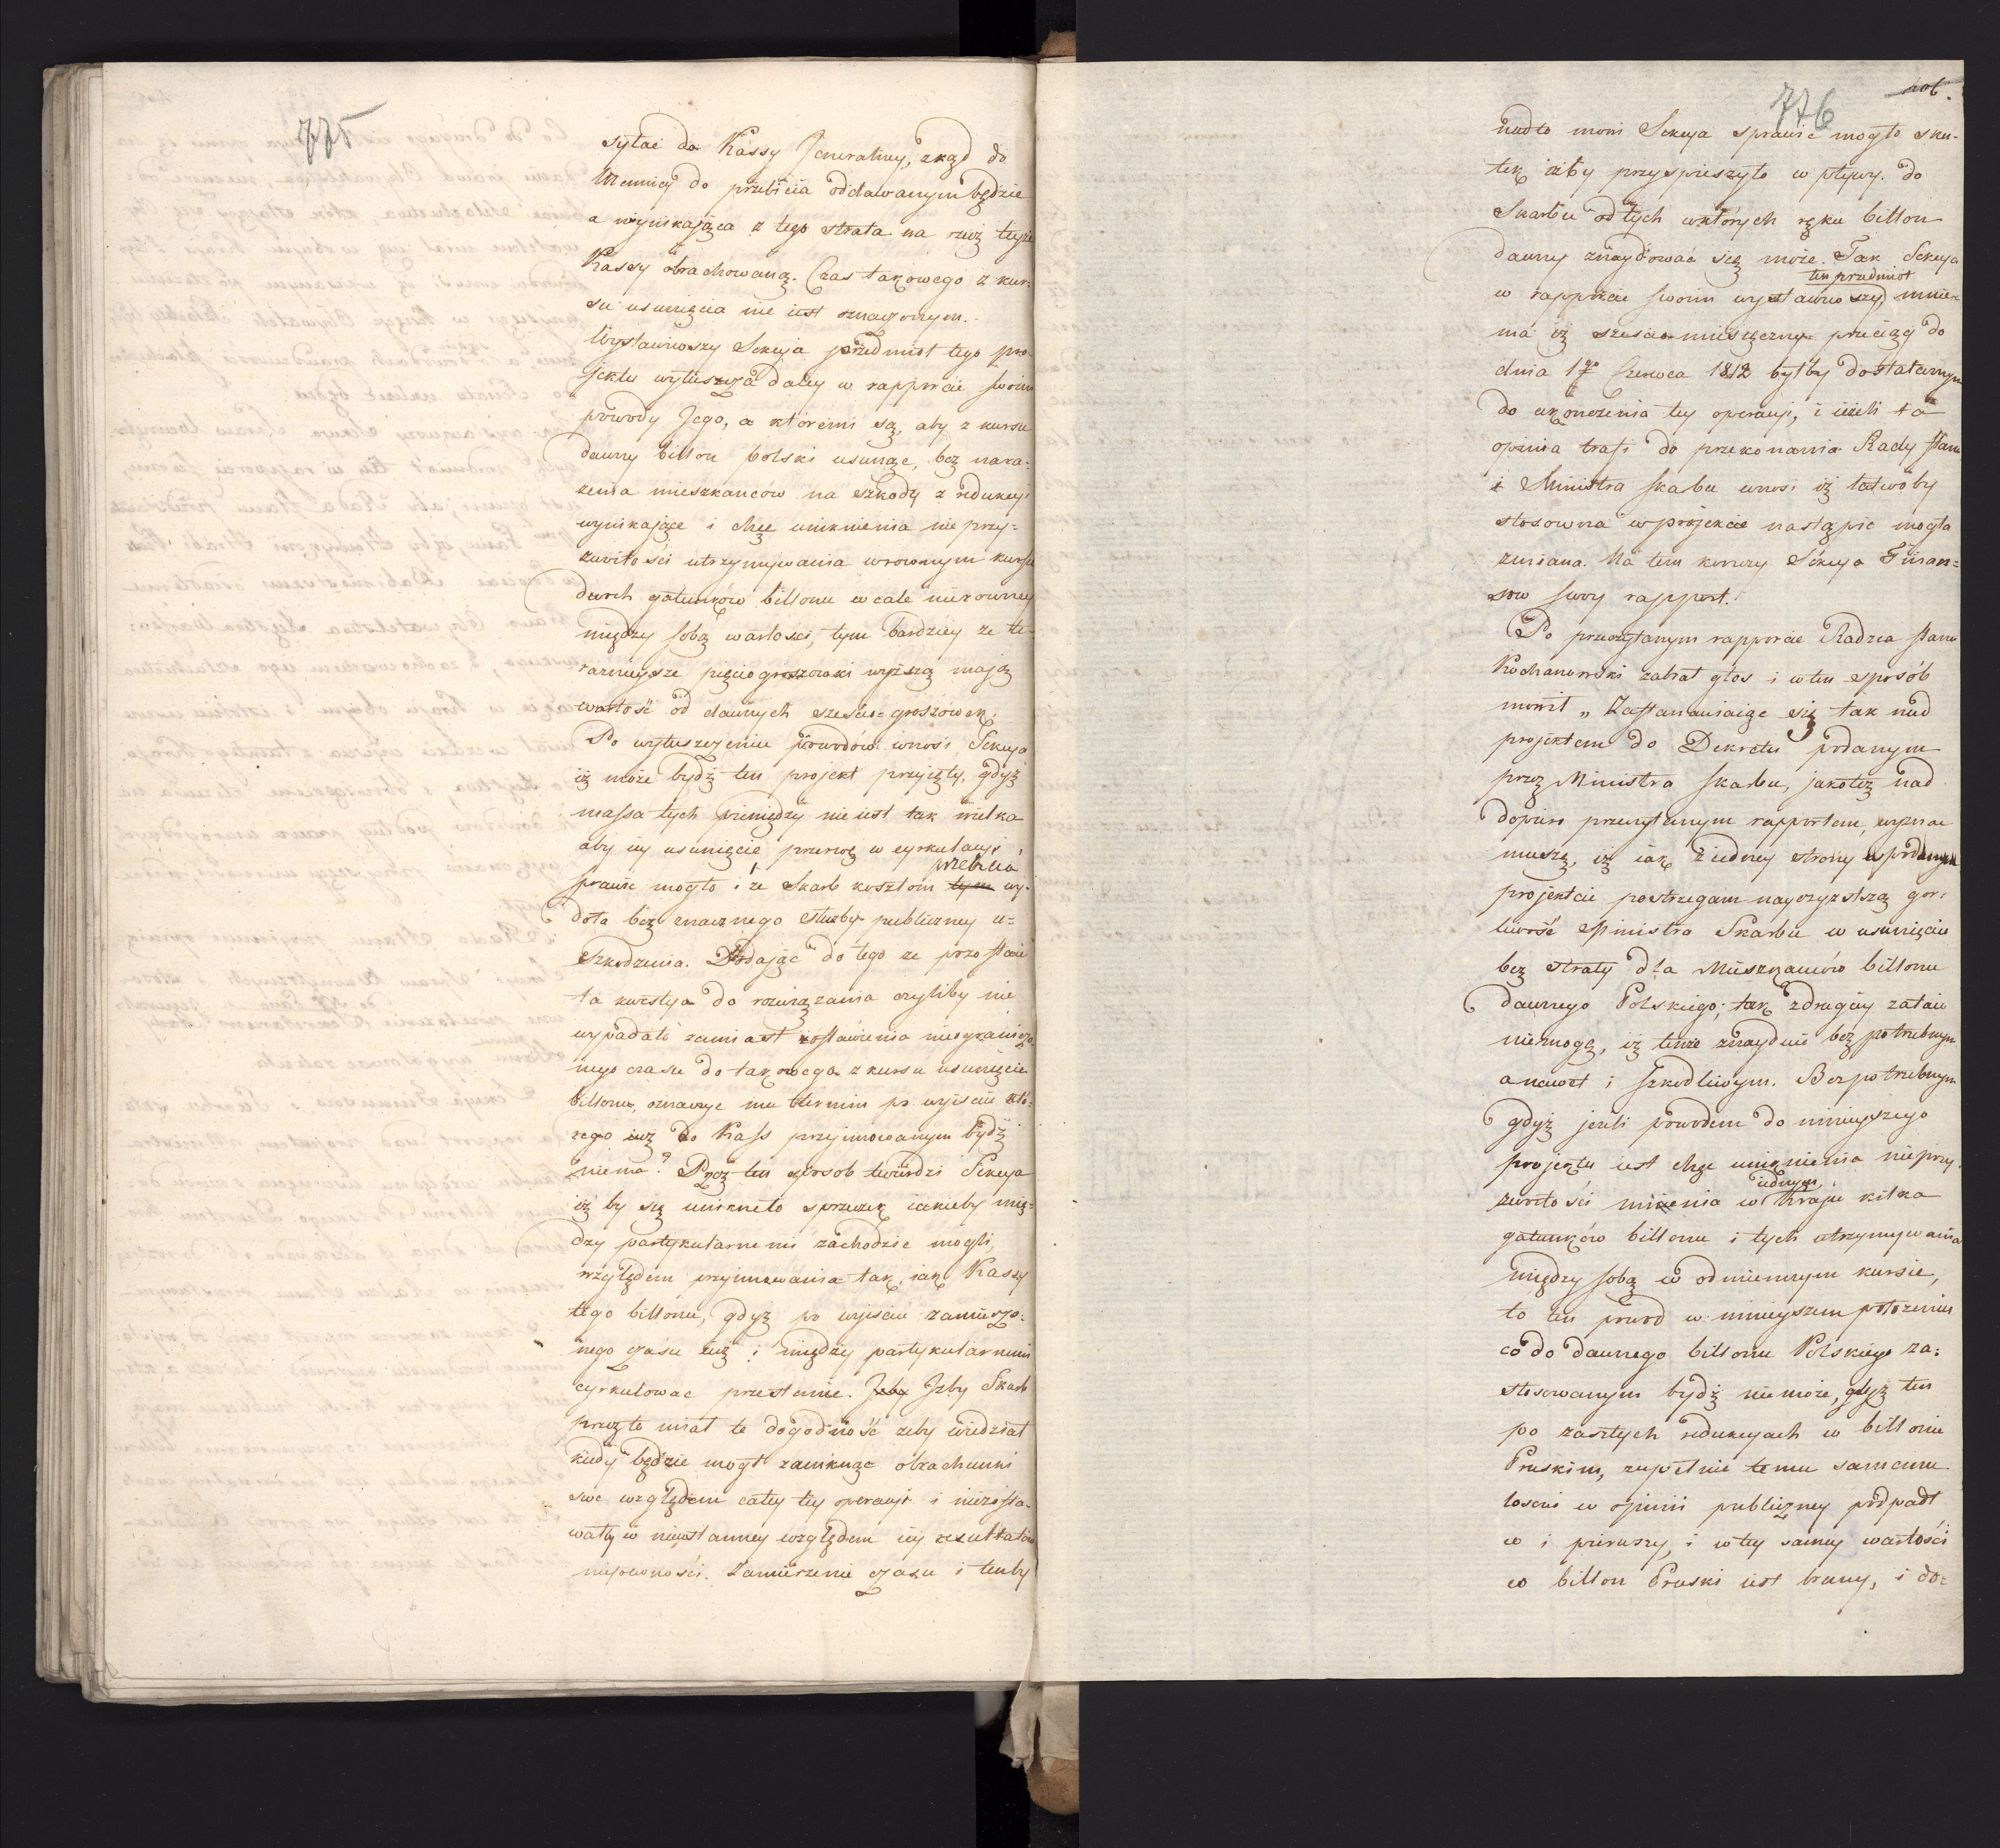 775
syłać do Kassy Jeneralney, zkąd do
Mennicy do przebicia oddawanym będzie
a wynikająca z tego strata na rzecz teyże
Kassy obrachowaną. Czas takowego z kur-
su usunięcia nie iest oznaczonym.
Wystawiwszy Sekcya przedmiot tego pro-
jektu wyłuszcza daley w rapporcie swoim
powody Jego, a któremi są, aby z kursu
dawny billon polski usunąć, bez nara-
żenia mieszkańców na szkodę z redukcyi
wynikające i chęć uniknienia nieprzy-
zwoitości utrzymywania wrownym kursie
dwóch gatunków billonu wcale nierówney
między sobą wartości, tym bardziey że te-
raznieysze pięciogroszowki wyższą mają
wartość od dawnych sześcio-groszowek.
Po wyłuszczeniu powodów wnosi Sekcya
iż może bydź ten projekt przyięty, gdyż
massa tych pieniędzy nie iest tak wielka
aby iey usunięcie przerwę w cyrkulacyi
sprawić mogło i że Skarb kosztom tym przebicia wy-
doła bez znacznego służby publiczney u-
szkodzenia. Dodając do tego że pozostaie
ta kwestya do rozwiązania czyliby nie
wypadało zamiast zostawienia nieograniczo-
nego czasu do takowego z kursu usunięcia
billonu, oznaczyć mu termin po wyiściu któ-
rego iuż do Kass przyimowanym bydź
niema? Przez ten sposob twierdzi Sekcya
iż by się uniknęło sprzeczek iakieby mię-
dzy partykularnemi zachodzić mogli,
względem przyimowania tak, iak Kassy
tego billonu, gdyż po wyiściu zamierzo-
nego czasu iuż i między partykularnemi
cyrkulować przestanie. Żeby Iżby Skarb
przezto miał te dogodność żeby wiedział
kiedy będzie mogł zamknąć obrachunki
swe względem całey tey operacyi i niezosta-
wały w nieustanney względem iey rezultatów
niepewności. Zamierzenie czasu i tenby
106.
776
nadto moni Sekcya sprawić mogło sku-
tek iżby przyspieszyło wpływy do
Skarbu od tych wktórych ręku billon
dawny znaydować się może. Tak Sekcya
w rapporcie swoim wystawiwszy ten przedmiot, mnie-
ma iż sześciomiesięczny przeciąg do
dnia 1go Czerwca 1812 byłby dostatecznym
do ukończenia tey operacyi, i ieżeli ta
opinia trafi do przekonania Rady Stanu
i Ministra Skarbu wnosi iż łatwoby
stosowna wprojekcie nastąpić mogła
zmiana. Na tem kończy Sekcya Finan-
sow swoy rapport.
Po przeczytanym rapporcie Radca Stanu
Kochanowski zabrał głos i wten sposób
mówił „ Zastanawiaiąc się tak nad
projektem do Dekretu podanym
przez Ministra Skarbu, jakoteż nad
dopiero przeczytanym rapportem, wyznać
muszę, iż iak z iedney strony w podanym
projekcie postrzegam nayczystszą gor-
liwość Ministra Skarbu w usunięciu
bez straty dla Mieszkańców billonu
dawnego Polskiego; tak zdrugiey zataić
niemogę, iż tenże znayduię bez potrzebnym
a nawet i szkodliwym. Bezpotrzebnym
gdyż jeżeli powodem do ninieyszego
projektu iest chęć uniknienia nieprzy-
zwoitości mienia w iednym Kraju kilka
gatunków billonu i tych utrzymywania
między sobą w odmiennym kursie,
to ten powod w ninieyszem położeniu
co do dawnego billonu Polskiego za-
stosowanym bydź nie może, gdyż ten
po zaszłych redukcyach w billonie
Pruskim, zupełnie temu samemu
losowi w opinii publiczney podpadł
co i pierwszy, i w tey samey wartości
co billon Pruski iest brany, i do-